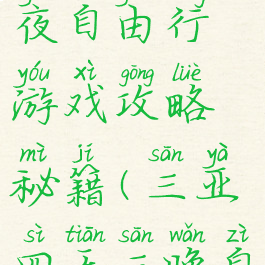 夜自由行
yóu xì gōng lüè
游戏攻略
mì jí sān yà
秘籍(三亚
sì tiān sān wǎn zì
四天三晚自